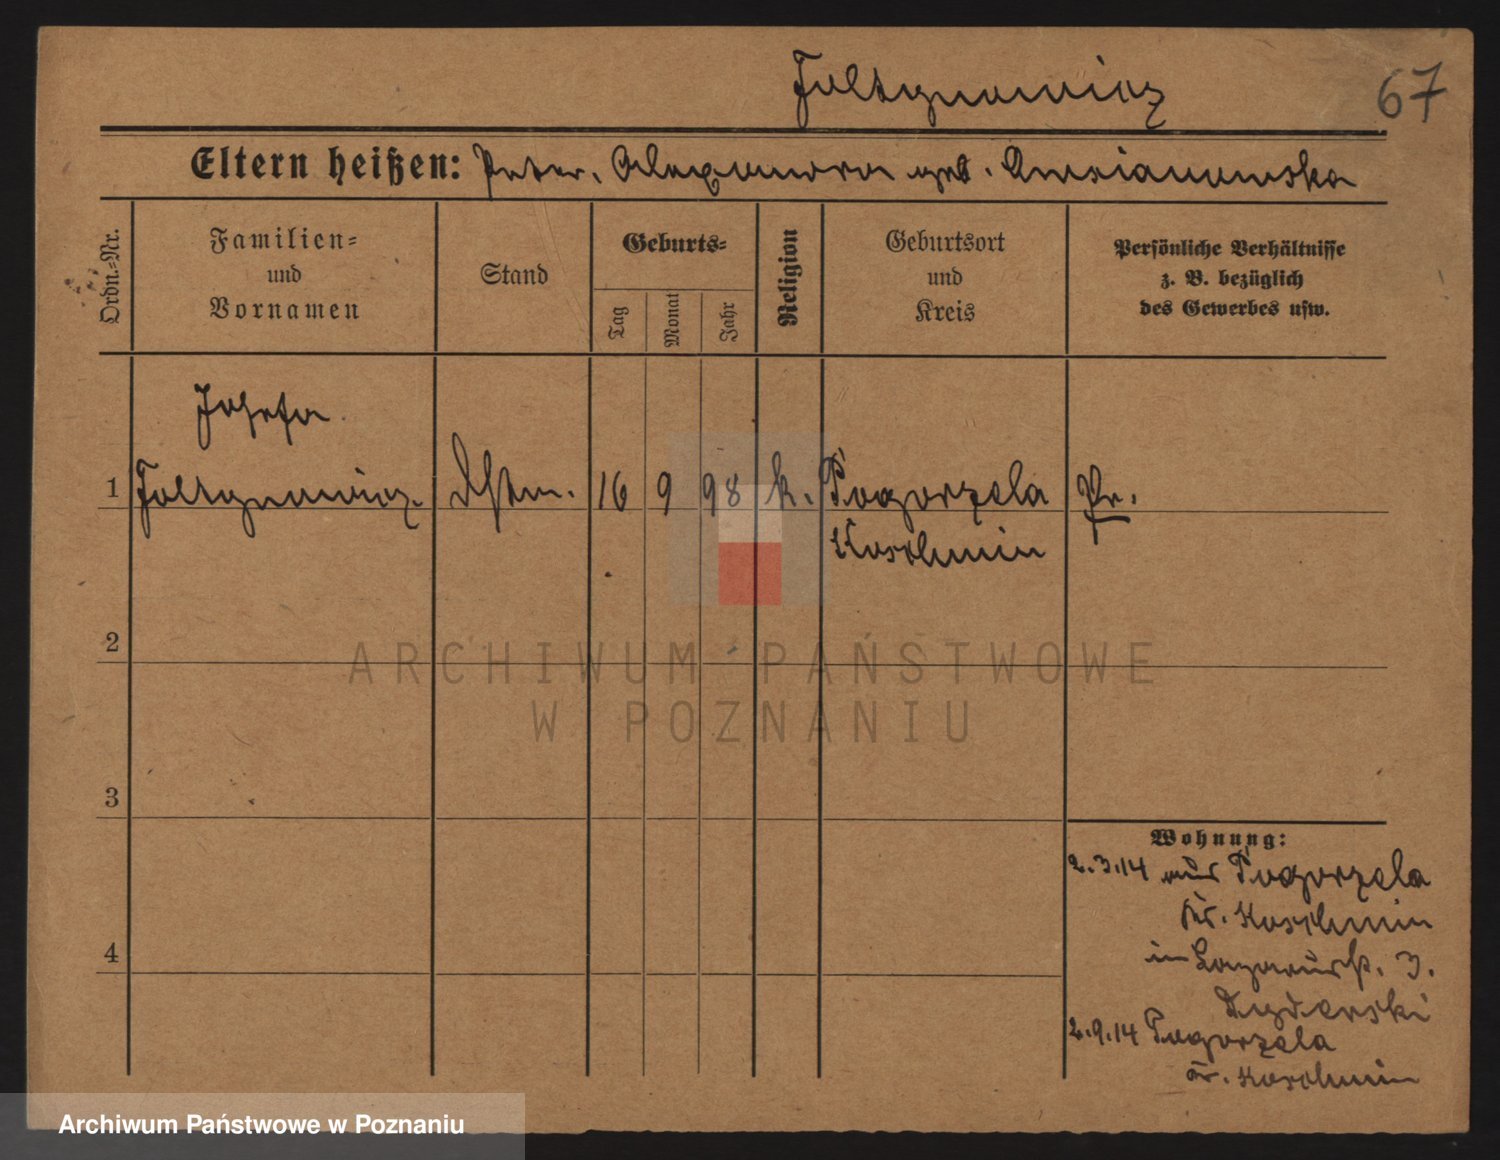 Foltynowicz
67
Eltern heißen: Peter. Alexandra geb.
Ordn.=Nr.
Familien=
und
Vornamen
Stand
Geburts=
Tag
Monat
Jahr
Religion
Geburtsort
und
Kreis
Persönliche Verhältnisse
z. B. bezüglich
des Gewerbes usw.
Josefa
1 Foltynowicz. 16 9 98 k. Pogorzela Pr.
Koschmin
2
3
4
Wohnung:
2.3.14 aus Pogorzela
Kr. Koschmin
in Lazarusstr. 3.
2.9.14 Pogorzela
Kr. Koschmin
ARCHIWUM PAŃSTWOWE
W POZNANIU
Archiwum Państwowe w Poznaniu